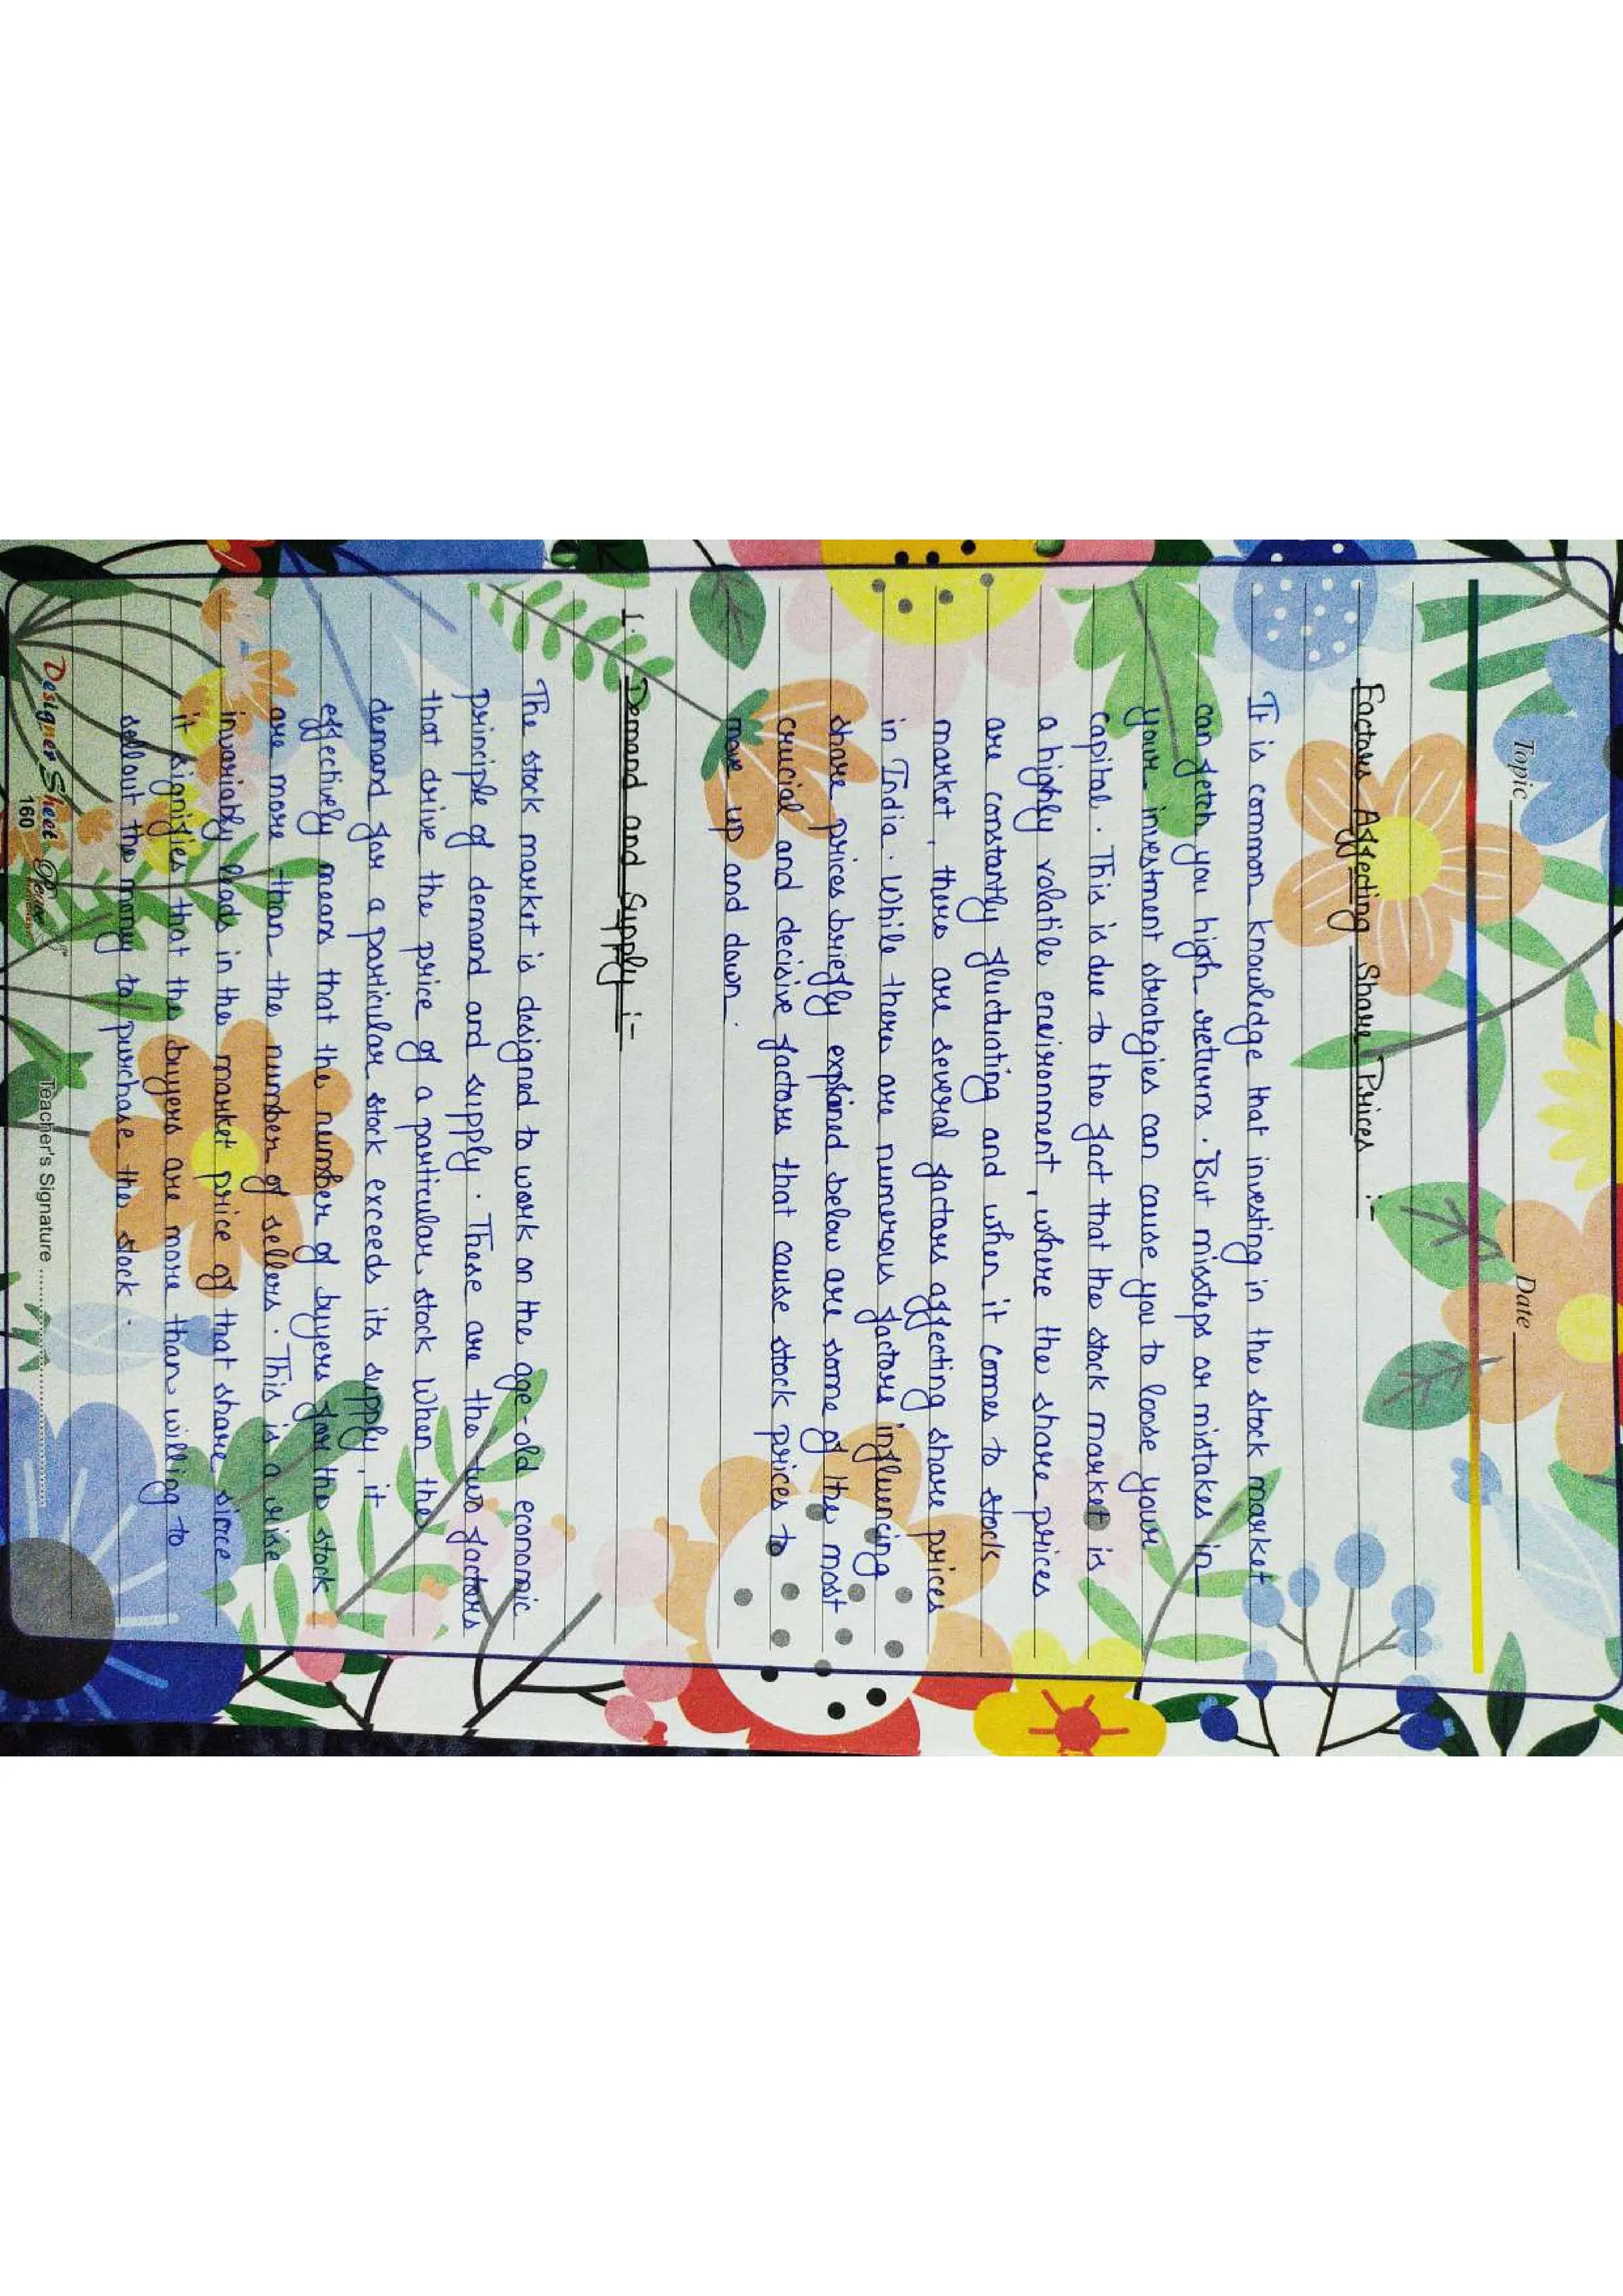 Topic Date
Factors Affecting Share Prices :-
It is common knowledge that investing in the stock market
can fetch you high returns. But missteps or mistakes in
your investment strategies can cause you to loose your
capital. This is due to the fact that the stock market is
a highly volatile environment, where the share prices
are constantly fluctuating and when it comes to stock
market, there are several factors affecting share prices
in India. While there are numerous factors influencing
share prices briefly explained below are some of the most
crucial and decisive factors that cause stock prices to
move up and down.
1. Demand and Supply :-
The stock market is designed to work on the age-old economic
principle of demand and supply. These are the two factors
that drive the price of a particular stock when the
demand for a particular stock exceeds its supply, it
effectively means that the number of buyers for the stock
are more than the number of sellers. This is a rise
invariably leads in the market price of that share since
it signifies that the buyers are more than willing to
sellout the money to purchase the stock.
Designer Sheet
160
Teacher's Signature